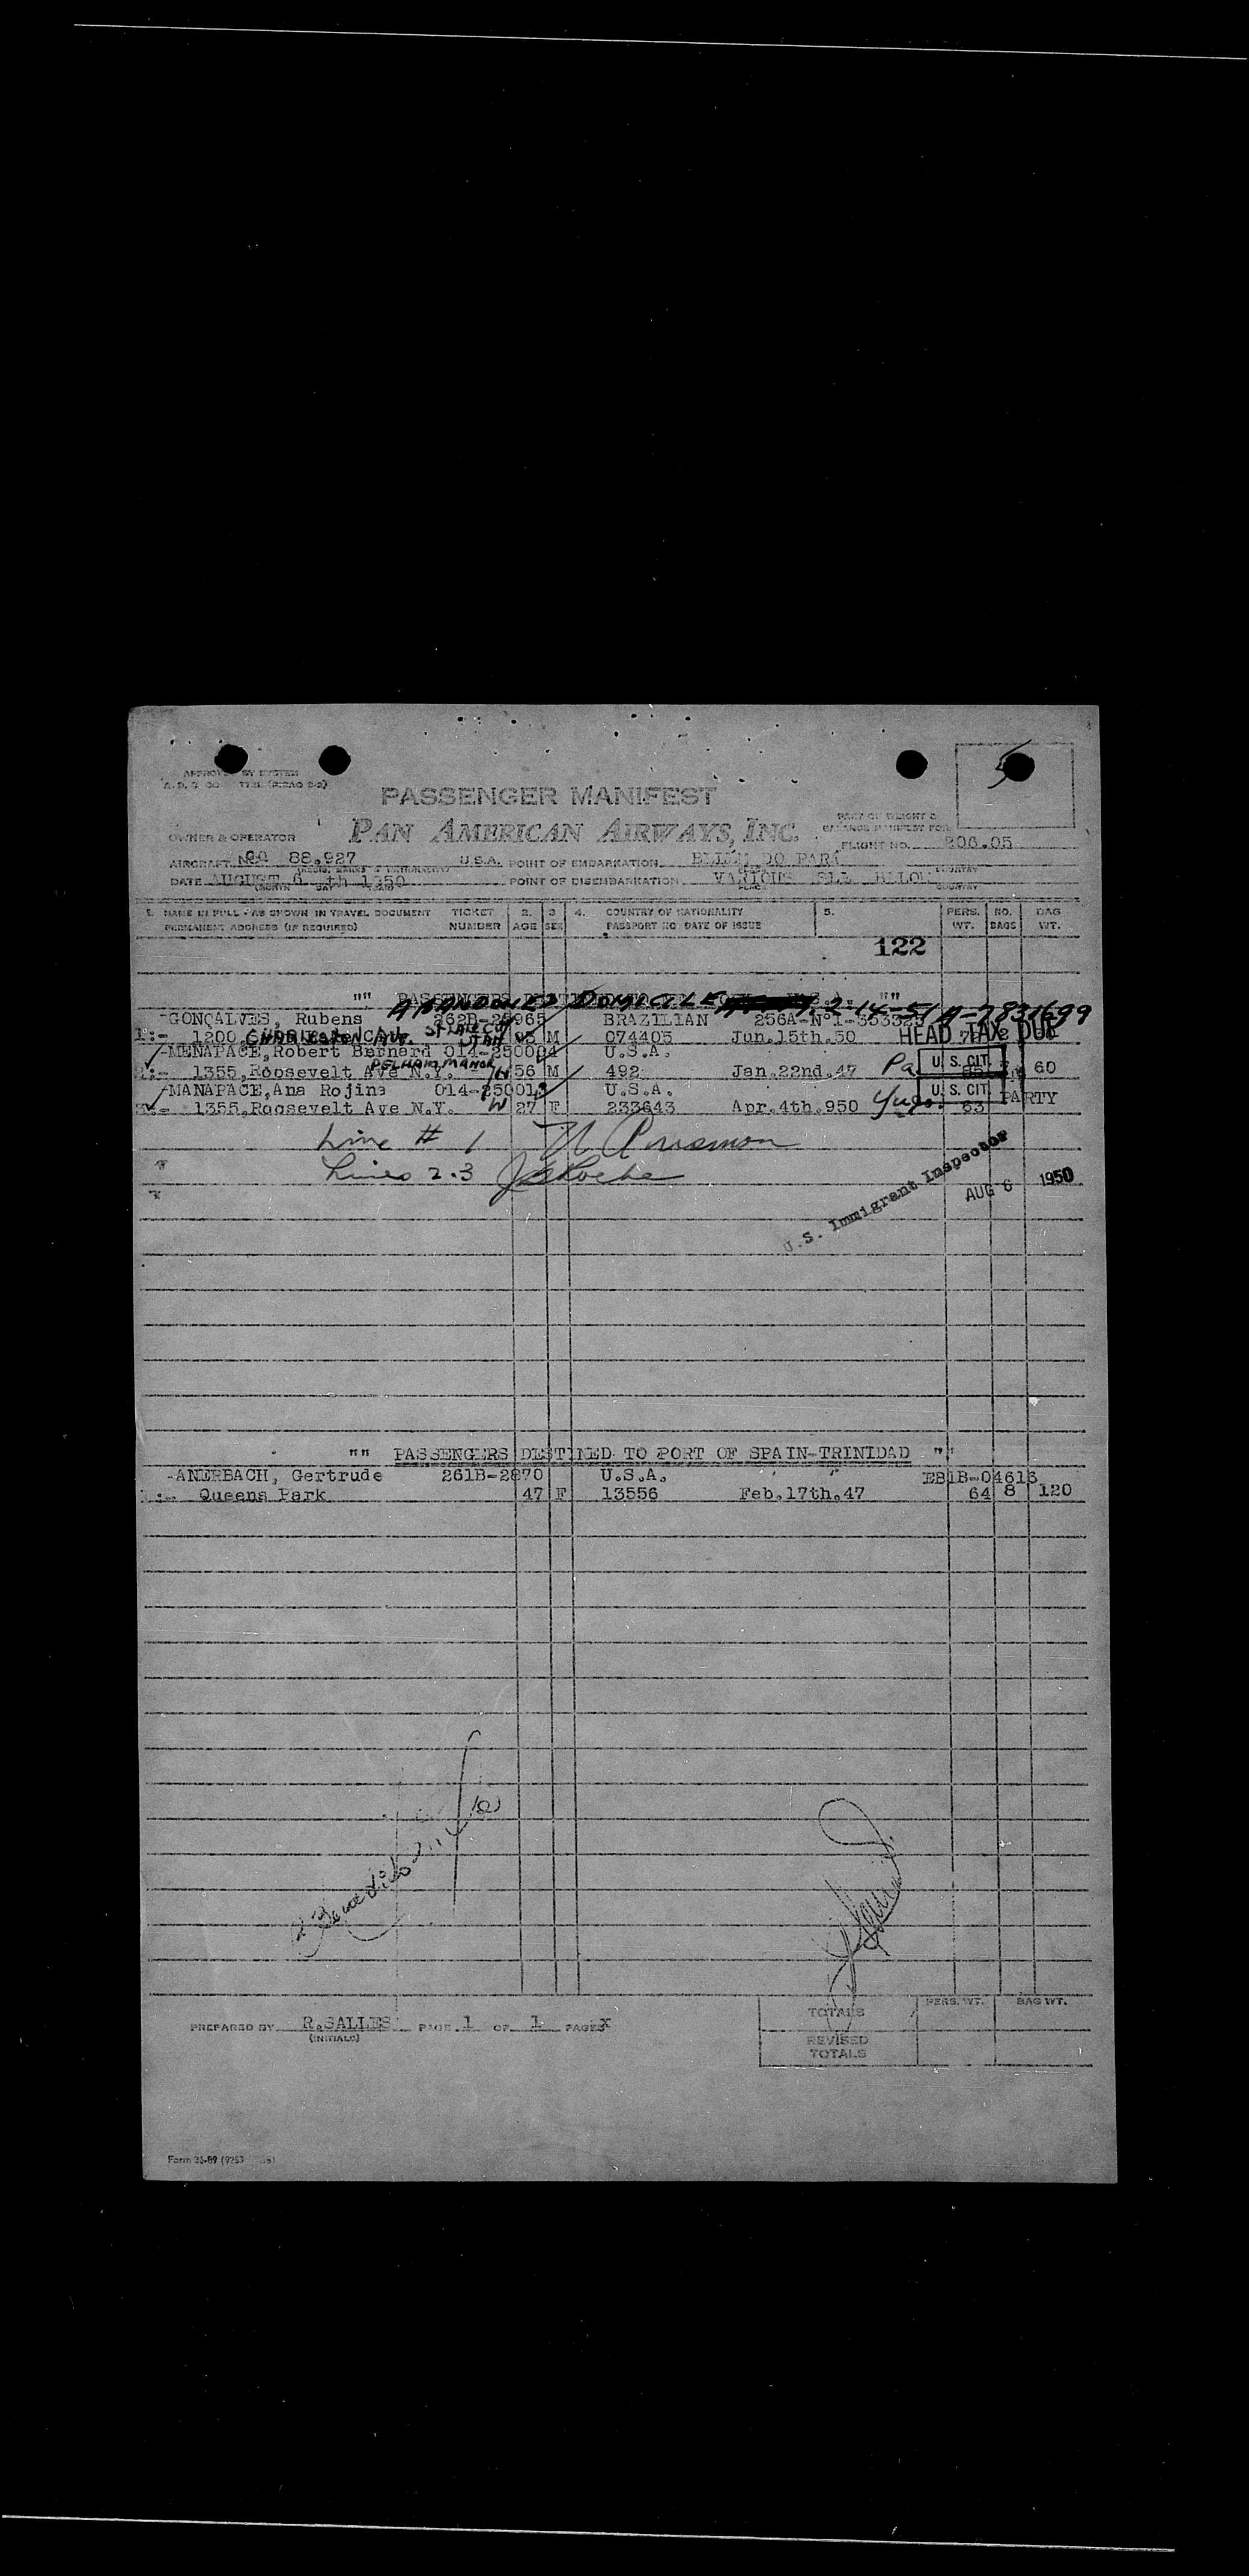 PASSENGER MANIFEST
PAN AMERICAN AIRWAYS, INC.
OWNER & OPERATOR
FLIGHT NO. 206.05
AIRCRAFT 88.927 U.S.A. POINT OF EMBARKATION DO PARÁ
DATE AUGUST 6 th 1950 POINT OF DISEMBARKATION VARIOUS
1. NAME IN FULL AS SHOWN IN TRAVEL DOCUMENT TICKET 2. 3 4. COUNTRY OF NATIONALITY 5. PERS. NO. BAG
PERMANENT ADDRESS (IF REQUIRED) NUMBER AGE SEX PASSPORT NO DATE OF ISSUE WT. BAGS WT.
122
ABANDONED DOMICILE 2-14-51 A-7831699
-GONÇALVES, Rubens BRAZILIAN
1200 UTAH M 074405 Jun.15th.50 HEAD TAX DUE
-MENAPACE, Robert Bernard 014-250004 U.S.A.
PELHAM MANOR
1355, Roosevelt Ave N.Y. 56 M 492 Jan.22nd.47 Pa U. S. CIT. 60
-MANAPACE, Ana Rojina U.S.A. U. S. CIT.
1355, Roosevelt Ave N.Y. W 27 F 233643 Apr.4th.950 Yugo. 63 PARTY
Line # 1
Lines 2.3
U.S. Immigrant Inspector
AUG 6 1950
"" PASSENGERS DESTINED TO PORT OF SPAIN-TRINIDAD ""
-ANERBACH, Gertrude 261B-2870 U.S.A. EB1B-04616
Queens Park 47 F 13556 Feb.17th.47 64 8 120
TOTALS PERS. WT. BAG WT.
PREPARED BY R.SALLES PAGE 1 OF 1 PAGES
(INITIALS)
REVISED
TOTALS
Form 35-89